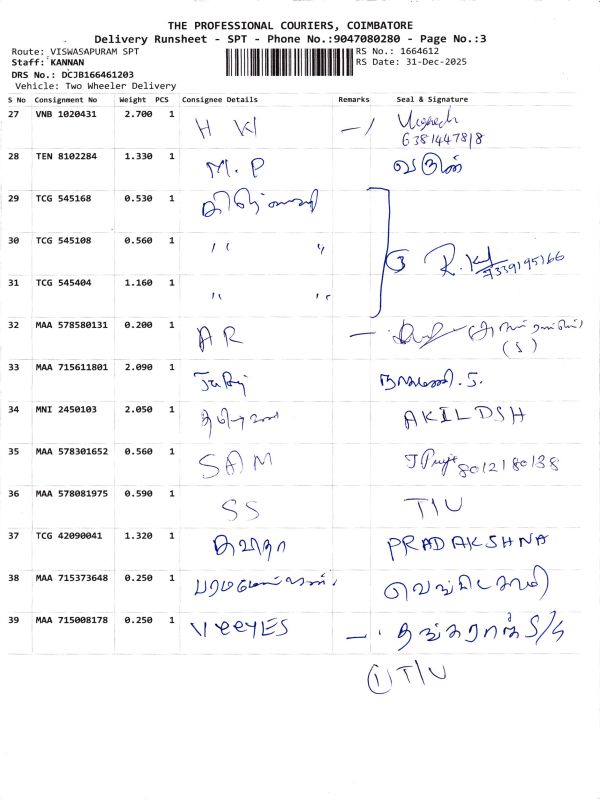 THE PROFESSIONAL COURIERS, COIMBATORE
Delivery Runsheet - SPT - Phone No.:9047080280 - Page No.:3
Route: VISWASAPURAM SPT RS No.: 1664612
Staff: KANNAN RS Date: 31-Dec-2025
DRS No.: DCJB166461203
Vehicle: Two Wheeler Delivery
S No Consignment No Weight PCS Consignee Details Remarks Seal & Signature
27 VNB 1020431 2.700 1 H K
6381447818
28 TEN 8102284 1.330 1 M.P வருண்
29 TCG 545168 0.530 1
30 TCG 545108 0.560 1 " " 3 R.K 9339195166
31 TCG 545404 1.160 1 " "
32 MAA 578580131 0.200 1 AR
(S)
33 MAA 715611801 2.090 1
34 MNI 2450103 2.050 1 AKILDSH
35 MAA 578301652 0.560 1 SAM 8012180138
36 MAA 578081975 0.590 1 SS T/U
37 TCG 42090041 1.320 1 கவிதா PRADAKSHNA
38 MAA 715373648 0.250 1
39 MAA 715008178 0.250 1 VeeyES தங்கராஜ் S/G
1 T/U